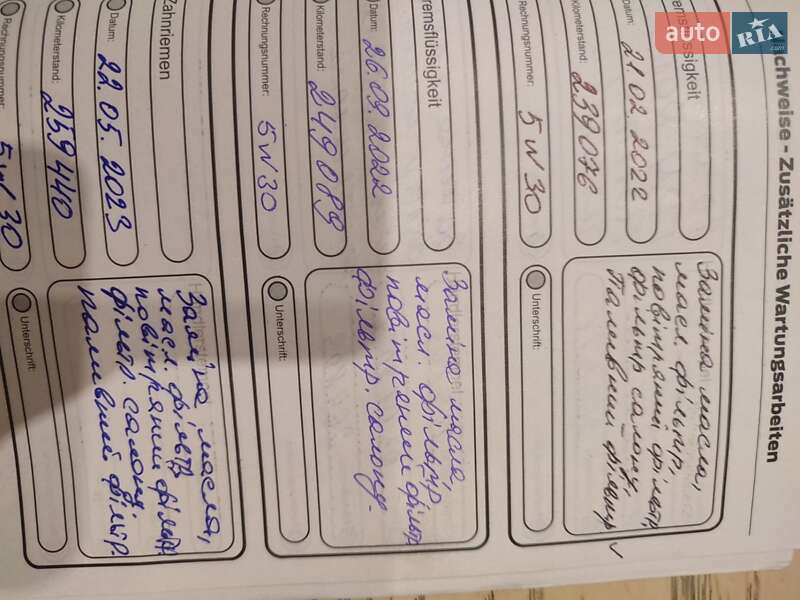 auto RIA.com
chweise - Zusätzliche Wartungsarbeiten
emsflüssigkeit
Datum:
21.02.2022
Kilometerstand:
239076
Rechnungsnummer:
5W30
Заміна масла,
масл. фільтр,
повітряний фільтр,
фільтр салону,
Паливний фільтр
Unterschrift:
remsflüssigkeit
Datum:
26.09.2022
Kilometerstand:
249089
Rechnungsnummer:
5W30
Заміна масла
масл. фільтр
повітряний фільтр
фільтр. салону.
Unterschrift:
Zahnriemen
Datum:
22.05.2023
Kilometerstand:
259440
Rechnungsnummer:
5W30
Заміна масла,
масл. фільтр
повітряний фільтр
фільтр. салону
паливний фільтр.
Unterschrift: